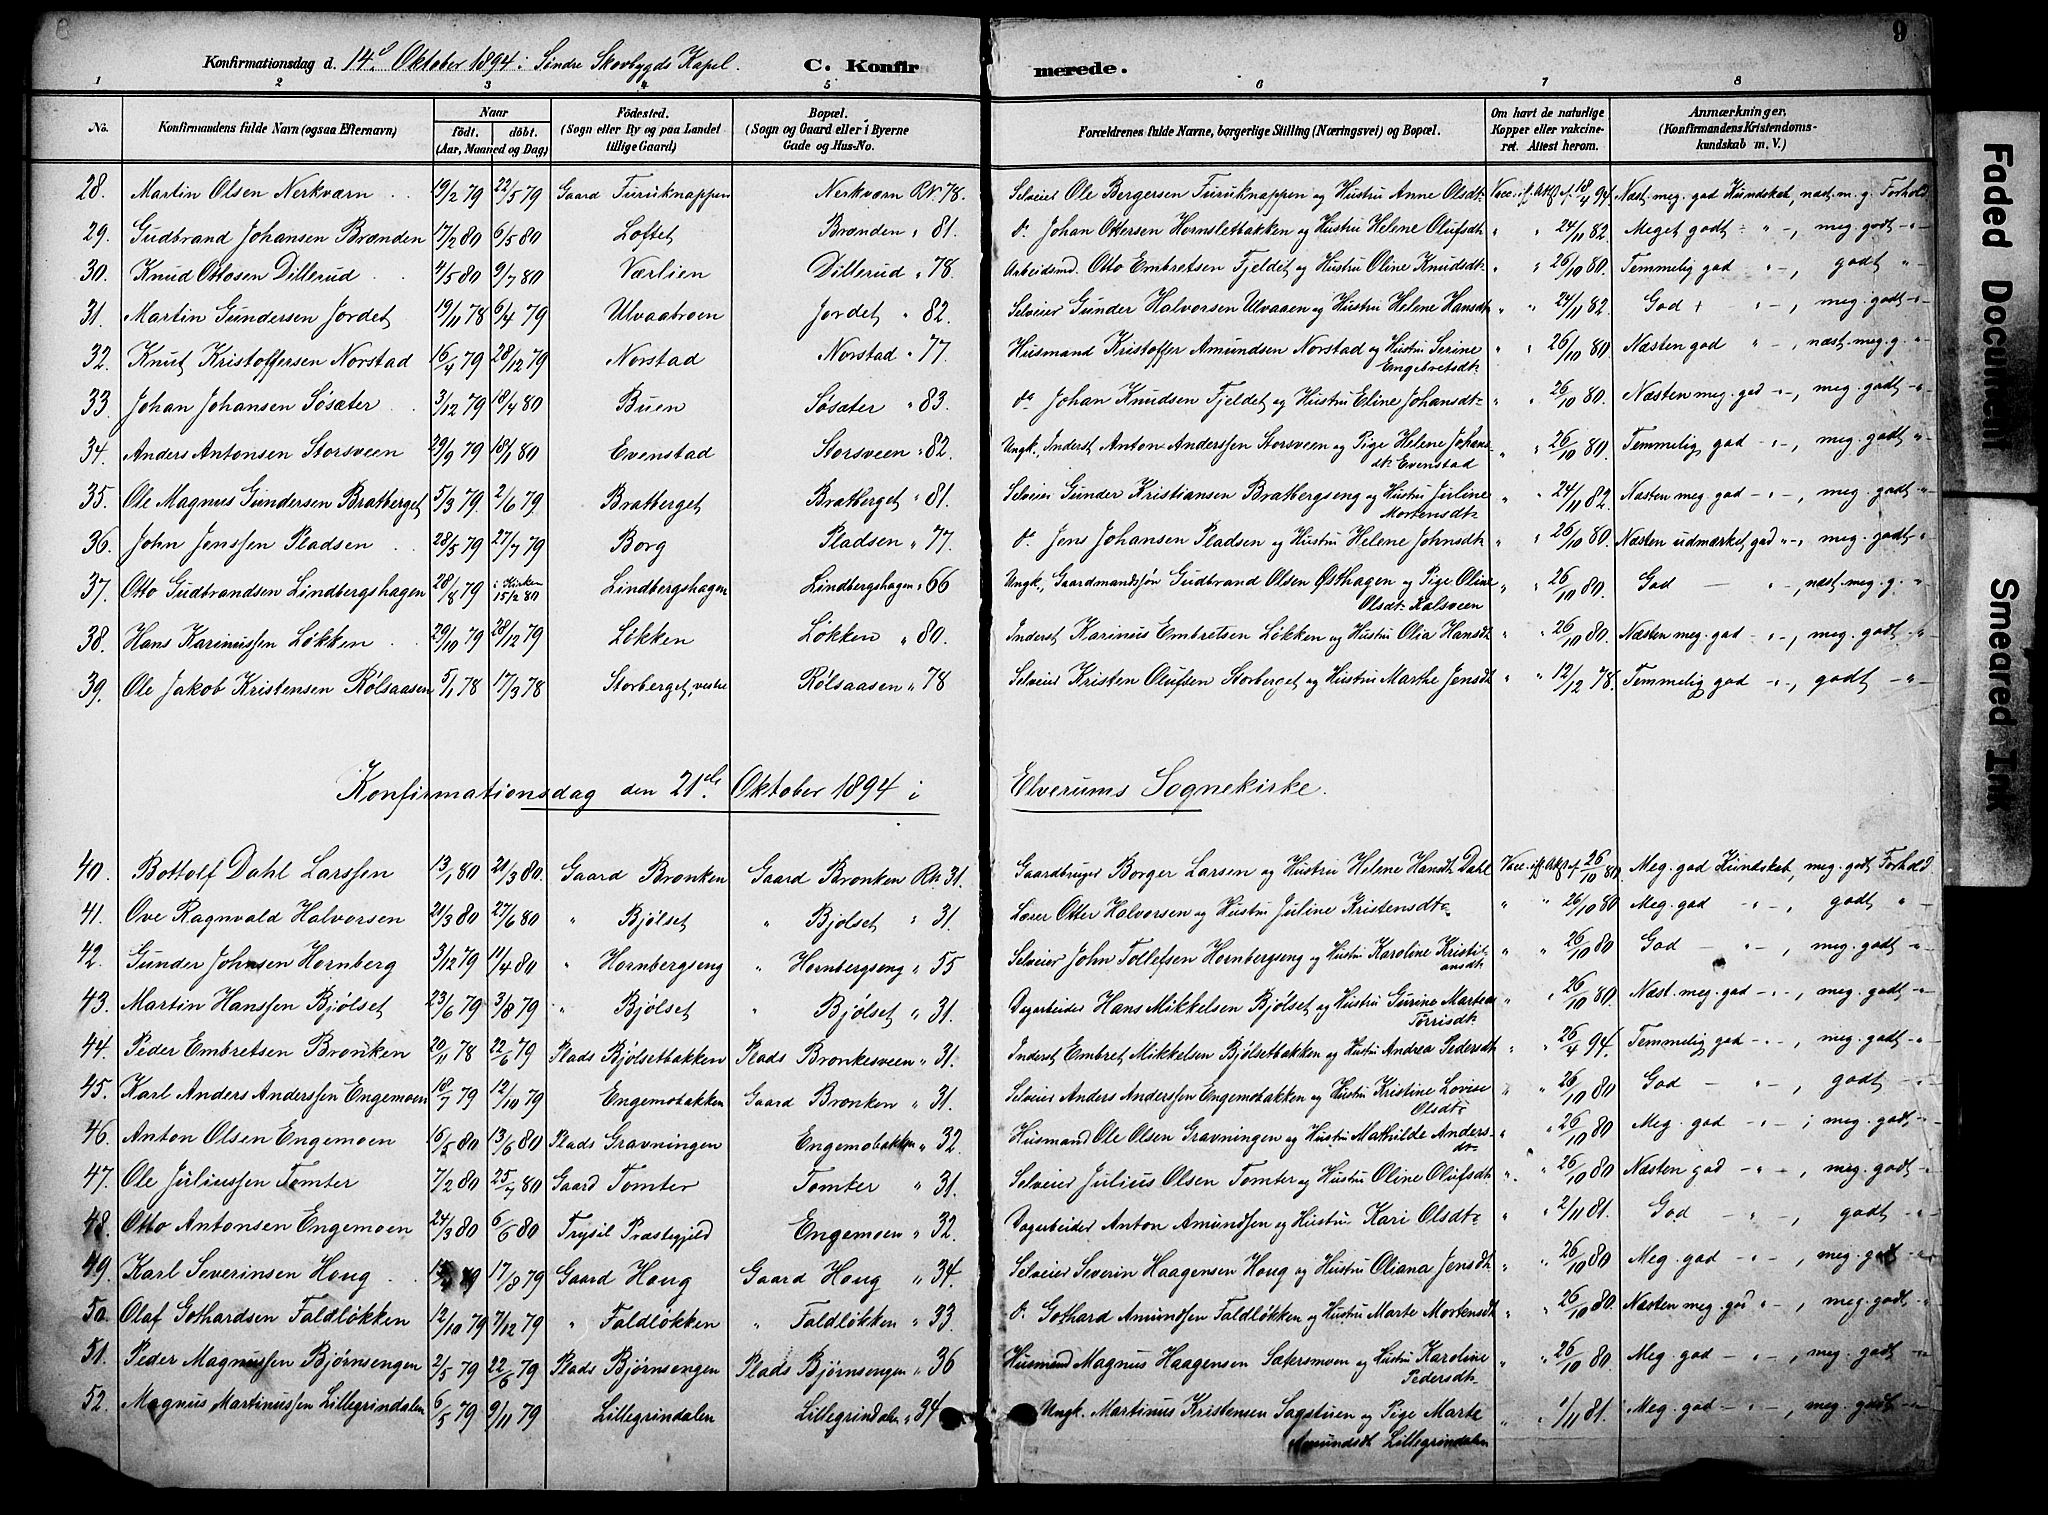 8
9
Konfirmationsdag d. 14de Oktober 1894 i Søndre Skovbygds Kapel. C. Konfirmerede.
1 2 3 4 5 6 7 8
No. Konfirmandens fulde Navn (ogsaa Efternavn) Naar født. døbt. (Aar, Maaned og Dag) Fødested. (Sogn eller By og paa Landet tillige Gaard) Bopæl. (Sogn og Gaard eller i Byerne Gade og Hus-No. Forældrenes fulde Navne, borgerlige Stilling (Næringsvei) og Bopæl. Om havt de naturlige Kopper eller vakcineret. Attest herom. Anmærkninger, (Konfirmandens Kristendomskundskab m. V.)
28. Martin Olsen Nerkværn 19/2 79 22/5 79 Gaard Furuknappen Nerkværn RN. 78. Selveier Ole Bergersen Furuknappen og Hustru Anne Olsdt. Vacc. if. Att. f. 18/4 94. Næst. meg. god Kundskab, næst. m. g. Forhold
29. Gudbrand Johansen Brænden 17/2 80 6/5 80 Loftet Brænden " 81. do Johan Ottersen Hornsletbakken og Hustru Helene Olufsdt. " " 24/11 82. Meget godt - " -, meg. godt - " -
30. Knud Ottosen Dillerud 4/5 80 9/7 80 Værlien Dillerud " 78. Arbeidsmd. Otto Embretsen Fjeldet og Hustru Oline Knudsdt. " " 26/10 80. Temmelig god " -, godt "
31. Martin Gundersen Jordet 19/11 78 6/4 79 Ulvaabroen Jordet " 82. Selveier Gunder Halvorsen Ulvaaen og Hustru Helene Hansdt. " " 24/11 82. God " -, meg. godt - " -
32. Knut Kristoffersen Norstad 16/4 79 28/12 79 Norstad Norstad " 77. Husmand Kristoffer Amundsen Norstad og Hustru Serine Engebretsdt. " " 26/10 80. Næsten god " -, næst. meg. g. "
33. Johan Johansen Søsæter 3/12 79 18/4 80 Buen Søsæter " 83. do Johan Knudsen Fjeldet og Hustru Eline Johansdt. " " 26/10 80. Næsten meg. god - " -, meg. godt - " -
34. Anders Antonsen Storsveen 29/9 79 18/1 80 Evenstad Storsveen " 82. Ungk., Inderst Anton Anderssen Storsveen og Pige Helene Johansdt. Evenstad " " 26/10 80. Temmelig god - " -, meg. godt "
35. Ole Magnus Gundersen Bratberget 5/3 79. 2/6 79. Bratberget Bratberget " 81. Selveier Gunder Kristiansen Bratbergseng og Hustru Juline Mortensdt. " " 24/11 82. Næsten meg. god - " -, meg. godt - " -
36. John Jenssen Pladsen 28/5 79 27/7 79 Borg Pladsen " 77. do Jens Johansen Pladsen og Hustru Helene Johnsdt. " " 26/10 80. Næsten udmærket god " -, meg. godt - " -
37. Otto Gudbrandsen Lindbergshagen 28/8 79 i Kirken 15/2 80 Lindbergshagen Lindbergshagen " 66 Ungk., Gaardmandssøn Gudbrand Olsen Østhagen og Pige Oline Olsdt. Kalsveen " " 26/10 80. God - " -, næst. meg. g. "
38. Hans Karinussen Løkken 29/10 79 28/12 79 Løkken Løkken " 80. Inderst Karinus Embretsen Løkken og Hustru Olia Hansdt. " " 26/10 80. Næsten meg. god - " -, meg. godt - " -
39. Ole Jakob Kristensen Rølsaasen 5/1 78 17/3 78 Storberget, vestre Rølsaasen " 78 Selveier Kristen Olufsen Storberget og Hustru Marthe Jensdt. " " 12/12 78. Temmelig god - " -, godt - " -
Konfirmationsdag den 21de Oktober 1894 i Elverums Sognekirke.
40. Bottolf Dahl Larssen 13/1 80 21/3 80. Gaard Bronken Gaard Bronken RN. 31. Gaardbruger Borger Larsen og Hustru Helene Hansdt. Dahl Vacc. if. Att. f. 26/10 80. Meg. god Kundskab, meg. godt Forhold
41. Ove Ragnvald Halvorsen 21/3 80 27/6 80 " Bjølset " Bjølset " 31. Lærer Otter Halvorsen og Hustru Juline Kristensdt. " " 26/10 80 Meg. god - " -, godt "
42. Gunder Johnsen Hornberg 3/12 79 11/4 80 " Hornbergseng " Hornbergseng " 55 Selveier John Tollefsen Hornbergseng og Hustru Karoline Kristiansdt. " " 26/10 80 God - " -, meg. godt - " -
43. Martin Hanssen Bjølset 23/6 79 3/8 79 " Bjølset " Bjølset " 31. Dagarbeider Hans Mikkelsen Bjølset og Hustru Gurine Martea Torrisdt. " " 26/10 80. Næst. meg. god - " -, meg. godt - " -
44. Peder Embretsen Bronken 20/11 78 22/6 79 Plads Bjølsetbakken Plads Bronkesveen " 31. Inderst Embret Mikkelsen Bjølsetbakken og Hustru Andrea Pedersdt. " " 26/4 94. Temmelig god - " -, meg. godt - " -
45. Karl Anders Anderssen Engemoen 18/7 79 12/10 79 Engemobakken Gaard Bronken " 31. Selveier Anders Anderssen Engemobakken og Hustru Kristine Lovise Olsdt. " " 26/10 80 God - " -, godt - " -
46. Anton Olsen Engemoen 16/5 80 13/6 80 Plads Gravningen Engemobakken " 32. Husmand Ole Olsen Gravningen og Hustru Mathilde Andersdt. " " 26/10 80 Meg. god - " -, meg. godt, - " -
47. Ole Juliussen Tomter 7/2 80 25/4 80 Gaard Tomter Tomter " 31. Selveier Julius Olsen Tomter og Hustru Oline Olufsdt. " " 26/10 80 Næsten god - " -, meg. godt - " -
48. Otto Antonsen Engemoen 24/3 80 6/6 80 Trysil Præstegjeld Engemoen " 32. Dagarbeider Anton Amundsen og Hustru Kari Olsdt. " " 2/11 81. God - " -, godt - " -
49. Karl Severinsen Houg 79 17/8 79 Gaard Houg Gaard Houg " 34. Selveier Severin Haagensen Houg og Hustru Oliana Jensdt. " " 26/10 80 Meg. god - " -, meg. godt - " -
50. Olaf Gothardsen Faldløkken 12/10 79 7/12 79 " Faldløkken " Faldløkken " 33. do Gothard Amundsen Faldløkken og Hustru Marte Mortensdt. " " 26/10 80. Næsten meg. god " -, meg. godt - " -
51. Peder Magnussen Bjørnsengen 2/5 79 22/6 79 Plads Bjørnsengen Plads Bjørnsengen " 36 Husmand Magnus Haagensen Sætersmoen og Hustru Karoline Pedersdt. " " 26/10 80. Meg. god - " -, meg. godt - " -
52. Magnus Martinussen Lillegrindalen 6/5 79 9/11 79 Lillegrindalen Lillegrindalen " 34 Ungk. Martinus Kristensen Sagstuen og Pige Marte Amundsdt. Lillegrindalen " " 1/11 81. Meg. god - " -, meg. godt - " -
Faded Document
Smeared Ink